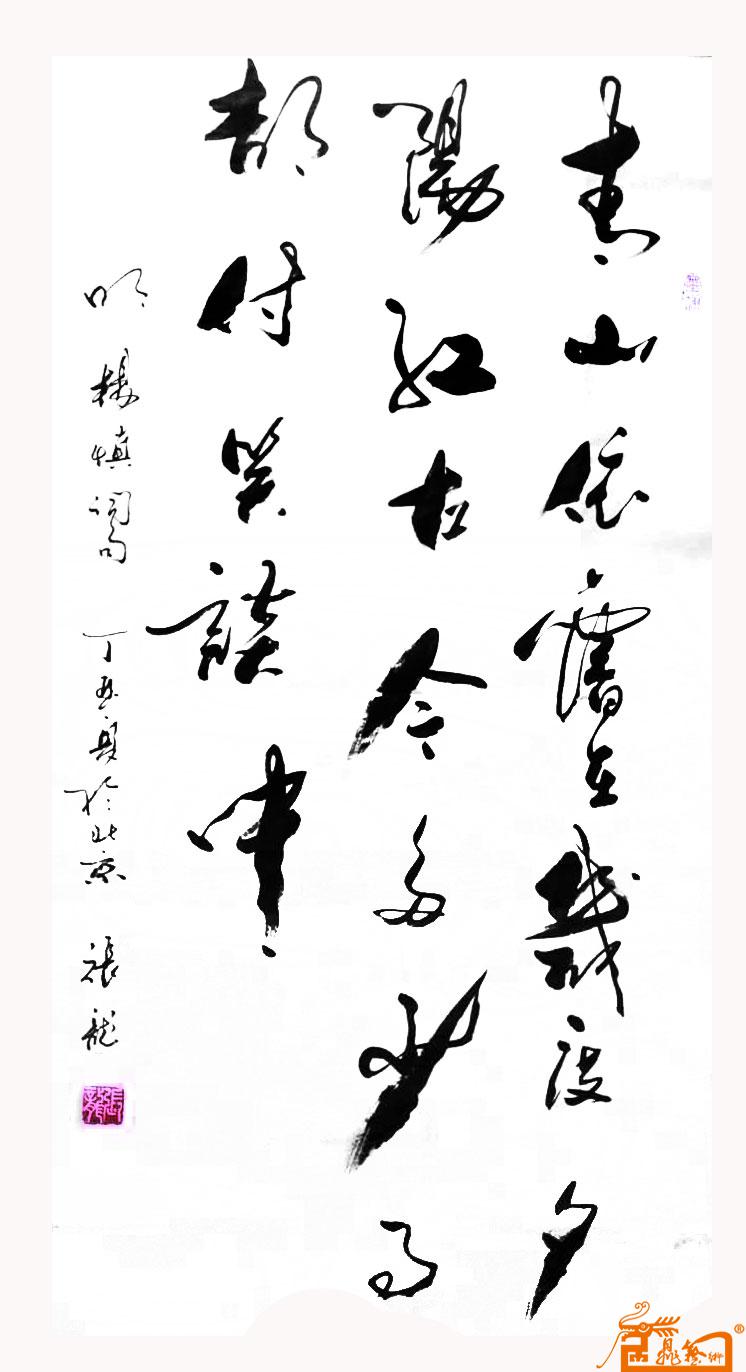 青山依舊在幾度夕
陽紅古今多少事
都付笑談中
明 楊慎詞句 丁丑夏於北京 張龍
張龍